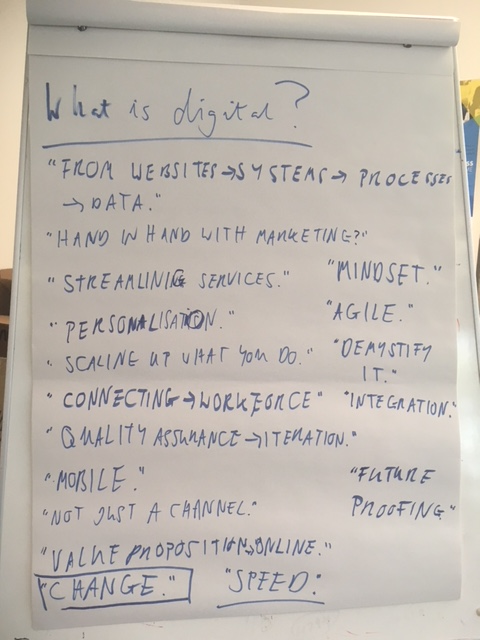 What is digital?
"FROM WEBSITES→SYSTEMS→ PROCESSES
→DATA."
"HAND IN HAND WITH MARKETING?"
"STREAMLINING SERVICES."
"MINDSET."
"PERSONALISATION."
"AGILE."
"SCALING UP WHAT YOU DO."
"DEMYSTIFY
IT."
"CONNECTING→WORKFORCE"
"INTEGRATION."
"QUALITY ASSURANCE→ITERATION."
"MOBILE."
"FUTURE
PROOFING"
"NOT JUST A CHANNEL."
"VALUE PROPOSITION→ONLINE."
"CHANGE."
"SPEED."